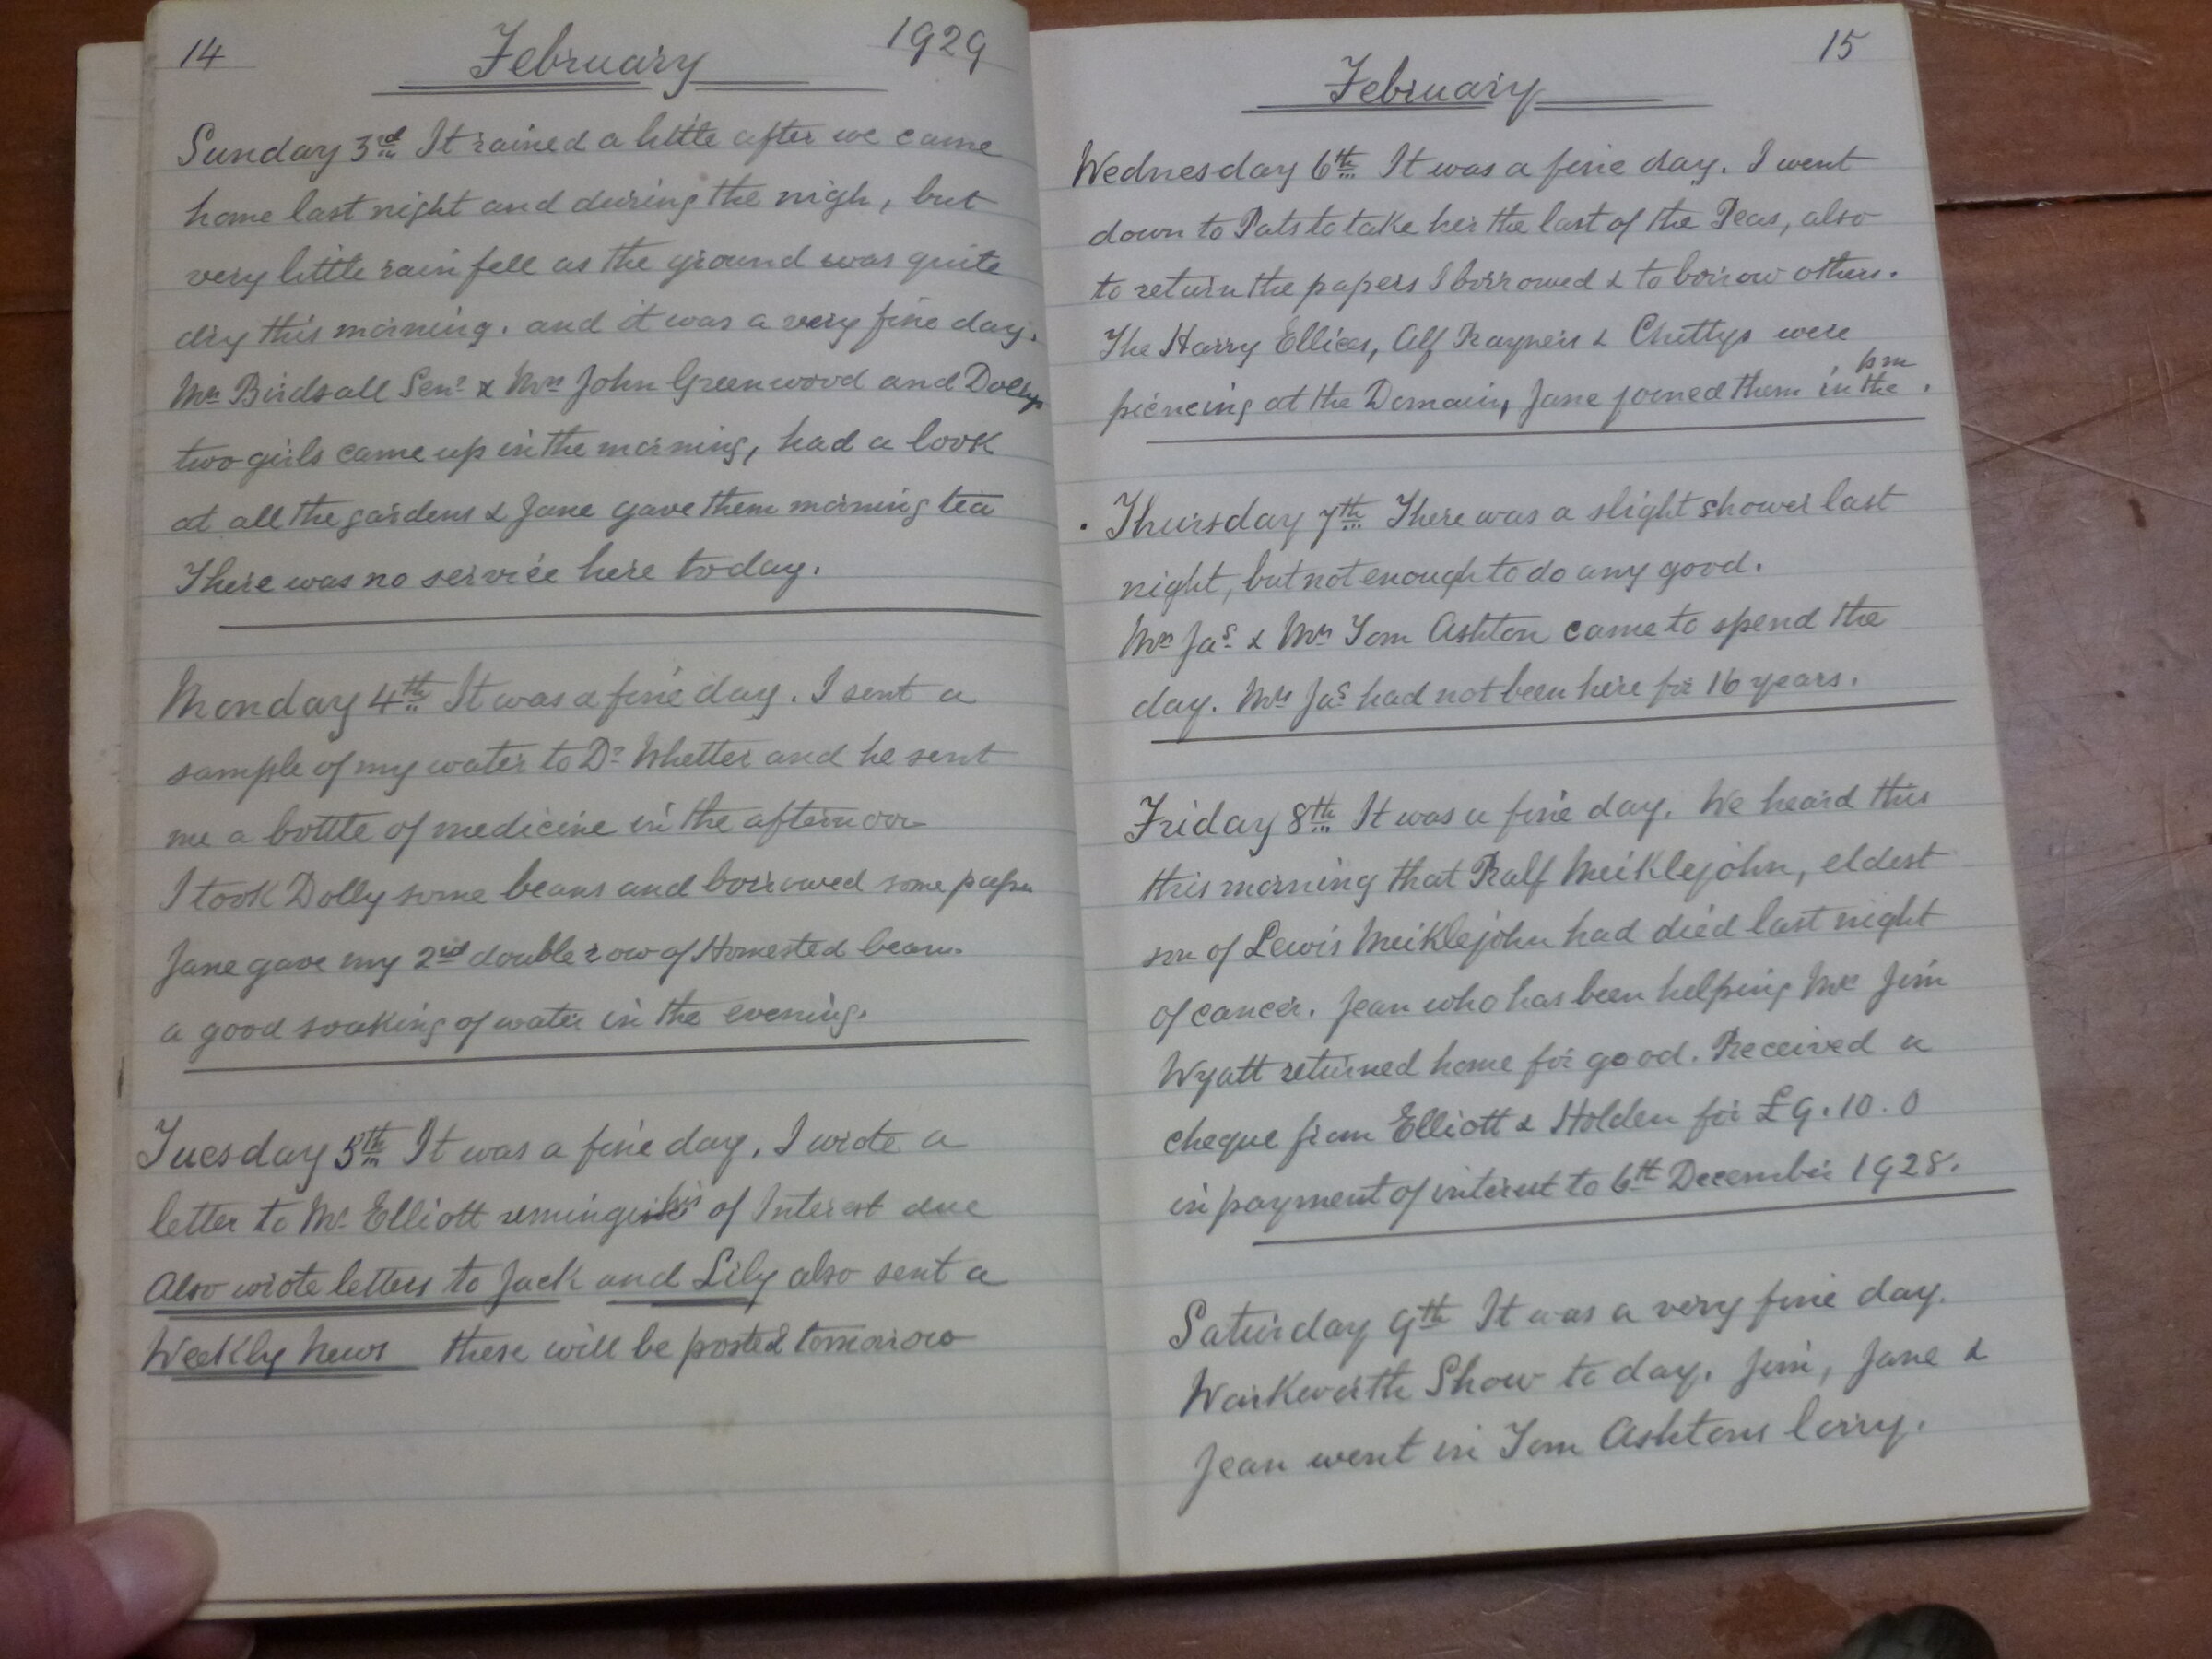 14 February 1929
Sunday 3rd It rained a little after we came
home last night and during the nigh, but
very little rain fell as the ground was quite
dry this morning. and it was a very fine day.
Mrs Birdsall Senr & Mrs John Greenwood and Dollys
two girls came up in the morning, had a look
at all the gardens & Jane gave them morning tea
There was no service here today.
Monday 4th It was a fine day. I sent a
sample of my water to Dr Whetter and he sent
me a bottle of medicine in the afternoon
I took Dolly some beans and borrowed some papers
Jane gave my 2nd double row of Homested beans
a good soaking of water in the evening.
Tuesday 5th It was a fine day. I wrote a
letter to Mr Elliott reminging his of Interest due
Also wrote letters to Jack and Lily also sent a
Weekly News these will be posted tomorrow
15
February
Wednesday 6th It was a fine day. I went
down to Pats to take her the last of the Peas, also
to return the papers I borrowed & to borrow others.
The Harry Ellices, Alf Rayners & Chettys were
picncing at the Domain, Jane joined them in the pm.
Thursday 7th There was a slight shower last
night, but not enough to do any good.
Mrs Jas & Mrs Tom Ashton came to spend the
day. Mrs Jas had not been here for 16 years.
Friday 8th It was a fine day. We heard this
this morning that Ralf Meiklejohn, eldest
son of Lewis Meiklejohn had died last night
of cancer. Jean who has been helping Mrs Jim
Wyatt returned home for good. Received a
cheque from Elliott & Holden for £9.10.0
in payment of interest to 6th December 1928.
Saturday 9th It was a very fine day.
Warkworth Show to day. Jim, Jane &
Jean went in Tom Ashtons lorry.